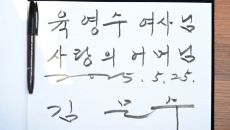 육영수 여사님
사랑의 어머님
5. 5. 25.
김 문 수